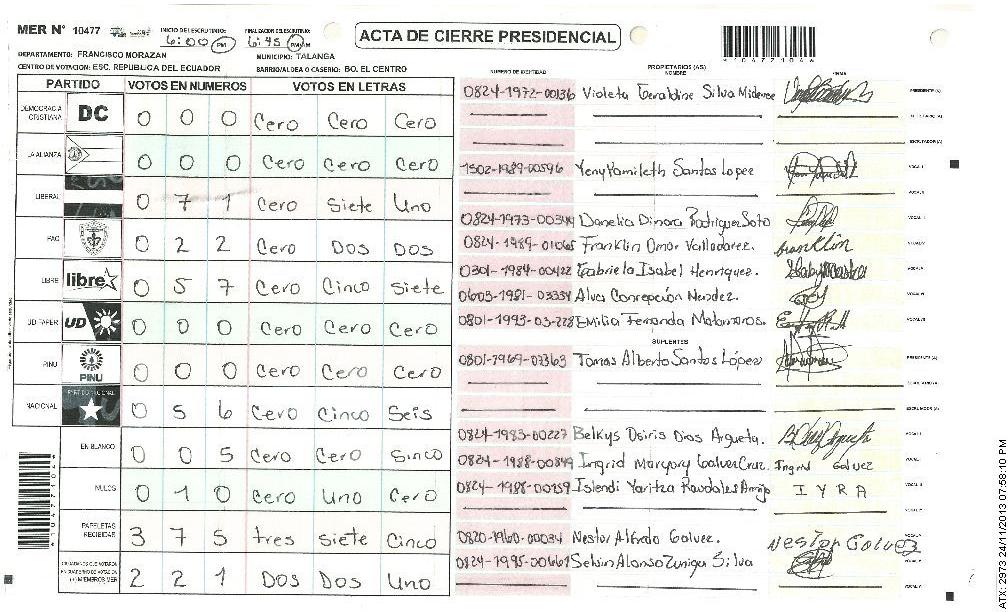 MER N° 10477 INICIO DEL ESCRUTINIO: 6:00 PM FINALIZACION DEL ESCRUTINIO: 6:45 PM
ACTA DE CIERRE PRESIDENCIAL
DEPARTAMENTO: FRANCISCO MORAZAN MUNICIPIO: TALANGA
CENTRO DE VOTACION: ESC. REPUBLICA DEL ECUADOR BARRIO/ALDEA O CASERIO: BO. EL CENTRO
PARTIDO VOTOS EN NUMEROS VOTOS EN LETRAS
DEMOCRACIA CRISTIANA DC 0 0 0 Cero Cero Cero
LA ALIANZA 0 0 0 Cero Cero Cero
LIBERAL 0 7 1 Cero Siete Uno
PAC 0 2 2 Cero Dos Dos
LIBRE libre 0 5 7 Cero Cinco Siete
UD FAPER UD 0 0 0 Cero Cero Cero
PINU PINU 0 0 0 Cero Cero Cero
NACIONAL 0 5 6 Cero Cinco Seis
EN BLANCO 0 0 5 Cero Cero Sinco
NULOS 0 1 0 Cero Uno Cero
PAPELETAS RECIBIDAS 3 7 5 tres siete Cinco
CIUDADANOS QUE VOTARON EN CUADERNO DE VOTACION (+) MIEMBROS MER 2 2 1 Dos Dos Uno
NUMERO DE IDENTIDAD PROPIETARIOS (AS) NOMBRE FIRMA
0824-1972-00136 Violeta Geraldine Silva Midence PRESIDENTE (A)
SECRETARIO (A)
ESCRUTADOR (A)
1502-1989-00596 Yeny Yamileth Santos Lopez
0824-1973-00344 Danelia Dinora Rodriguez Soto
0824-1989-01065 Franklin Omar Valladarez. franklin
0301-1984-00422 Gabriela Isabel Henriquez.
0603-1981-03334 Alva Concepción Mendez.
0801-1993-03-228 Emilia Fernanda Matamoros.
SUPLENTES
0801-1969-02363 Tomas Alberto Santos López PRESIDENTE (A)
SECRETARIO (A)
ESCRUTADOR (A)
0824-1983-00227 Belkys Osiris Dias Argueta.
0824-1988-00849 Ingrid Maryory Galvez Cruz. Ingrid Galvez
0824-1988-00259 Islendi Yaritza Raudales I Y R A
0820-1960-00034 Nestor Alfredo Galvez. Nestor Galvez
0824-1995-00661 Selvin Alonso Zuniga Silva
ATX: 2973 24/11/2013 07:58:10 PM